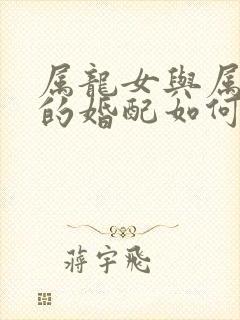 属龍女與属
的婚配如何
蔣宇飛